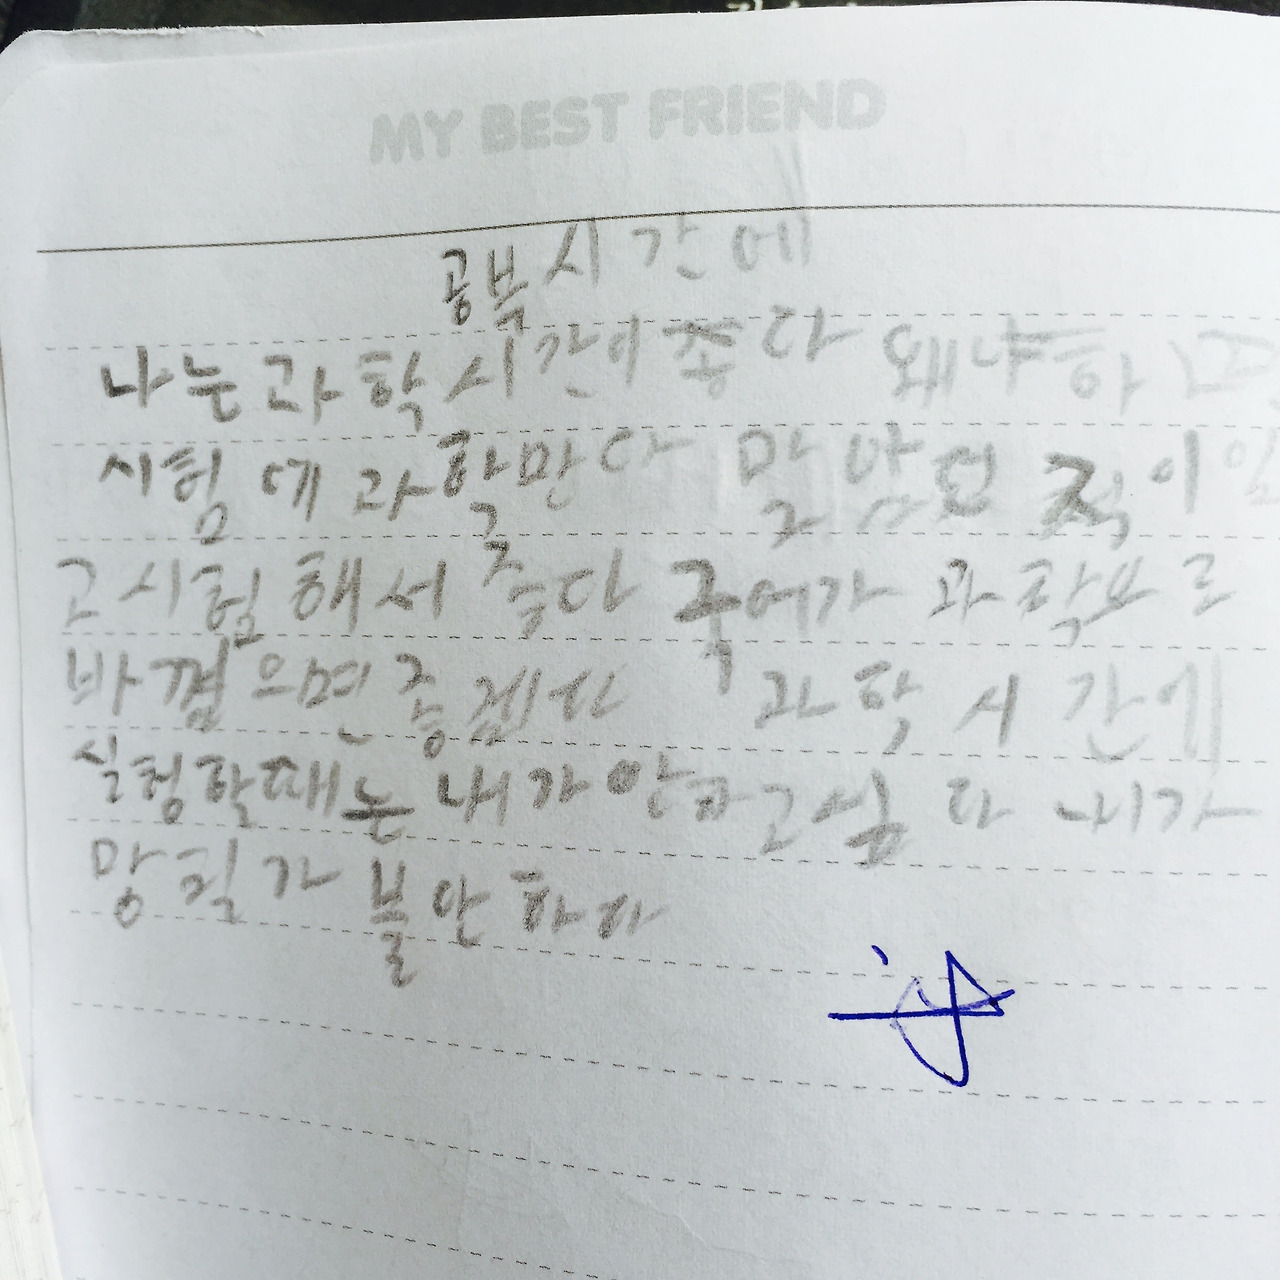 MY BEST FRIEND
공부시간에
나는과학시간이좋다 왜냐하면
시험에 과학만다 맞았던 적이 있
고시험해서 좋다 국어가 과학으로
바꼈으면 좋겠다 과학시간에
실헝할때는 내가 안하고싶다 내가
망칠가 불안하다